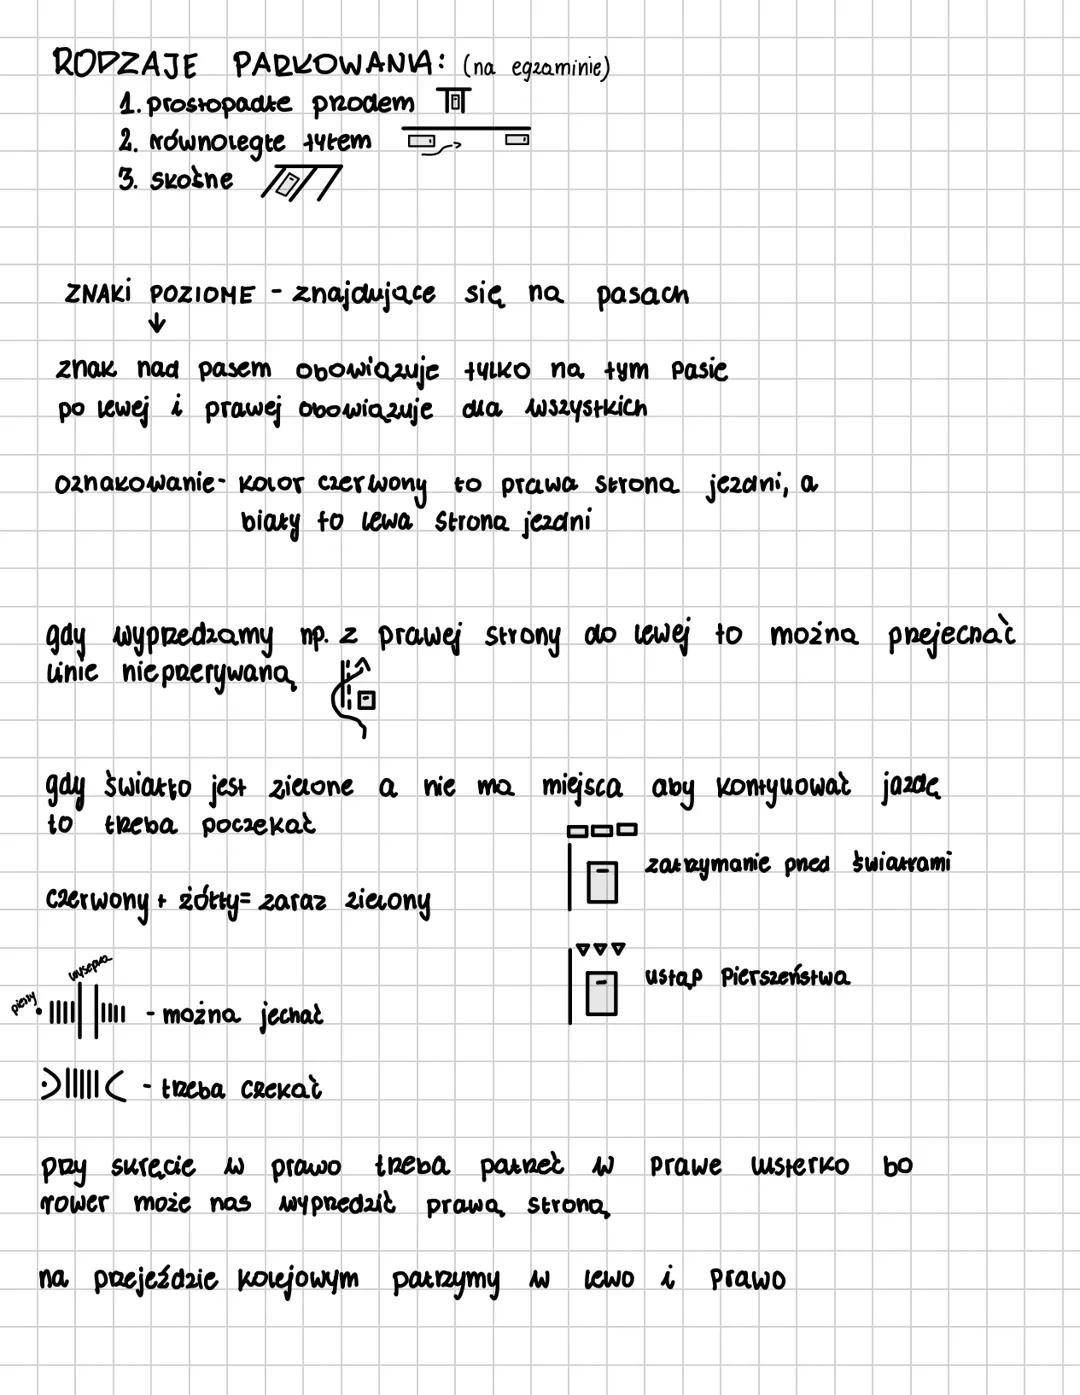 RODZAJE PARKOWANIA: (na egzaminie)
1. prostopadłe przodem
2. równoległe tyłem
3. skośne
ZNAKI POZIOME - znajdujące się na pasach
znak nad pasem obowiązuje tylko na tym pasie
po lewej i prawej obowiązuje dla wszystkich
oznakowanie - kolor czerwony to prawa strona jezdni, a
biały to lewa strona jezdni
gdy wyprzedzamy np. z prawej strony do lewej to można przejechać
linie nieprzerywaną
gdy światło jest zielone a nie ma miejsca aby kontyuować jazdę
to trzeba poczekać
zatrzymanie przed światłami
czerwony + żółty = zaraz zielony
wysepka
pieszy
ustąp pierszeństwa
- można jechać
- trzeba czekać
przy skręcie w prawo trzeba patrzeć w prawe lusterko bo
rower może nas wyprzedzić prawą stroną
na przejeździe kolejowym patrzymy w lewo i prawo